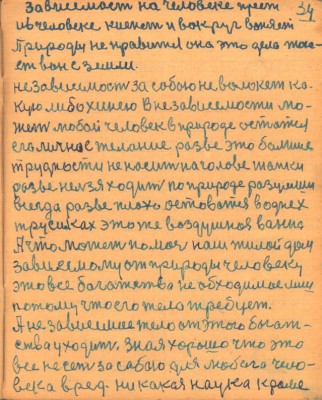 34
Зависемост на человеке прет
и в человеке кипет и вокруг воняет
Природы не правится она это дело тол-
ст вон с земли.
независемост за собою не воложет ка-
кую либо химею В независемости мо-
жет любой человек в природе остатся
его личное желание разве это большие
трудности не носит на голове шапки
разве нелзя ходит по природе разутыми
всегда разве плохо остоватся в однех
трусиках это же воздушная ванна
А что может помоч наш милой дом
зависемому от природы человеку
это все богатство необходимое лиш
потому что его тело требует.
А не зависемое тело от этого богат-
ства уходит. Зная хорошо что это
все несет за собою для любога чело-
века вред. никакая наука кроме